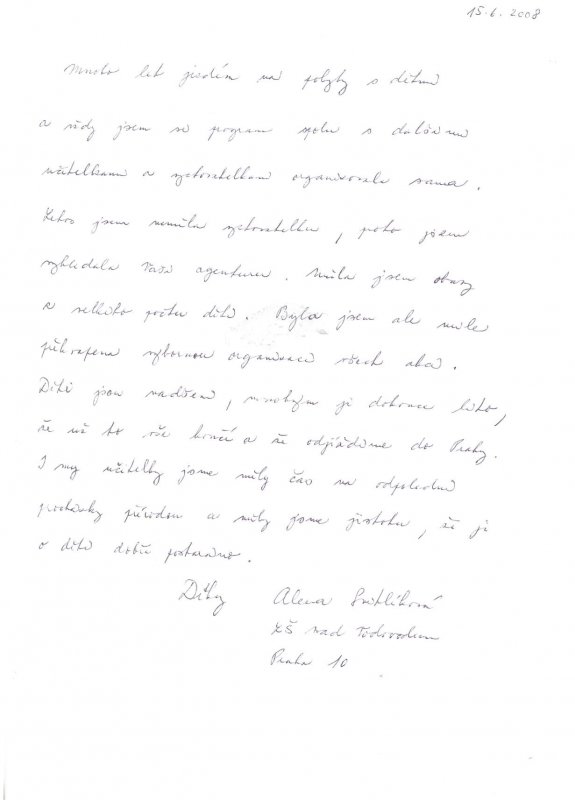 15.6.2008
Mnoho let jezdím na pobyty s dětmi
a vždy jsem si program spolu s dalšími
učitelkami a vychovatelkami organizovala sama.
Letos jsem neměla vychovatelku, proto jsem
vyhledala Vaši agenturu. Měla jsem obavy
z velkého počtu dětí. Byla jsem ale mile
překvapena výbornou organizací všech akcí.
Děti jsou nadšeni, mnohým je dokonce líto,
že už to vše končí a že odjíždíme do Prahy.
I my učitelky jsme měly čas na odpolední
procházky přírodou a měly jsme jistotu, že je
o děti dobře postaráno.
Díky Alena
ZŠ nad Vodovodem
Praha 10